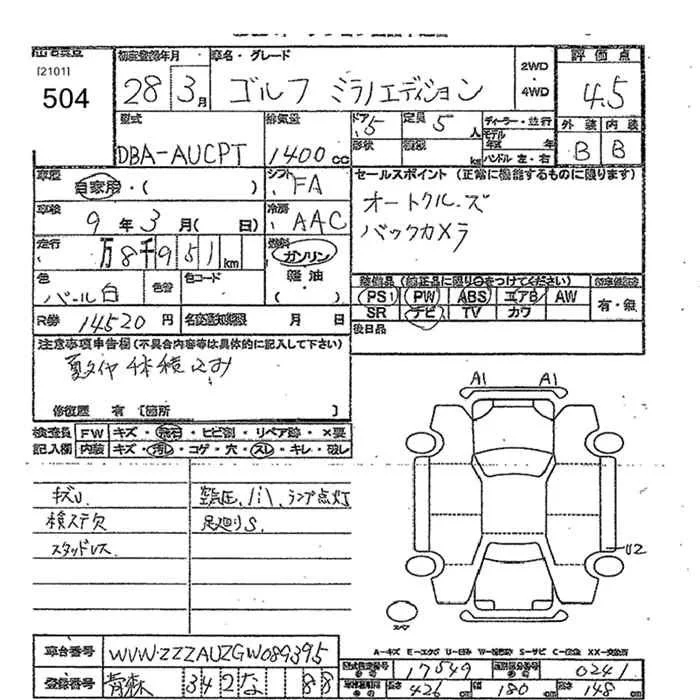 [2101]
504
初度登録年月
28 3月
車名・グレード
ゴルフ ミラノエディション
2WD
・
4WD
評価点
4.5
外装 内装
B B
型式
DBA-AUCPT
排気量
1400 cc
ドア 5
定員 5 人
形状
ディーラー・並行
モデル
年式 年
ハンドル 左・右
車歴
自家用・( )
シフト FA
セールスポイント (正常に機能するものに限ります)
オートクルーズ
バックカメラ
車検
9年 3月( 日)
冷房 AAC
走行
万8千951km
燃料
ガソリン
軽油
( )
色
パール白
色替
色コード
装備品 (純正品に限り○をつけてください)
PS PW ABS エアB AW
SR ナビ TV カワ
有・無
R券 14520円
名変期限 月 日
後日品
注意事項申告欄 (不具合内容等は具体的に記入して下さい)
夏タイヤ4本積込み
修復歴 有 [箇所 ]
検査員 FW キズ・飛石・ヒビ割・リペア跡・×要
記入欄 内装 キズ・汚レ・コゲ・穴・スレ・キレ・破レ
A1 A1
キズU
検ステ欠
スタッドレス
空気圧、ハイ、ランプ点灯
足廻りS.
U2
スペア
A-キズ E-エクボ U-凹み
車台番号 WVWZZZAUZGW089395
登録番号 青森 342 な 88
型式指定番号 17549
類別区分番号 0241
長さ 426 cm
幅 180 cm
高さ 148 cm